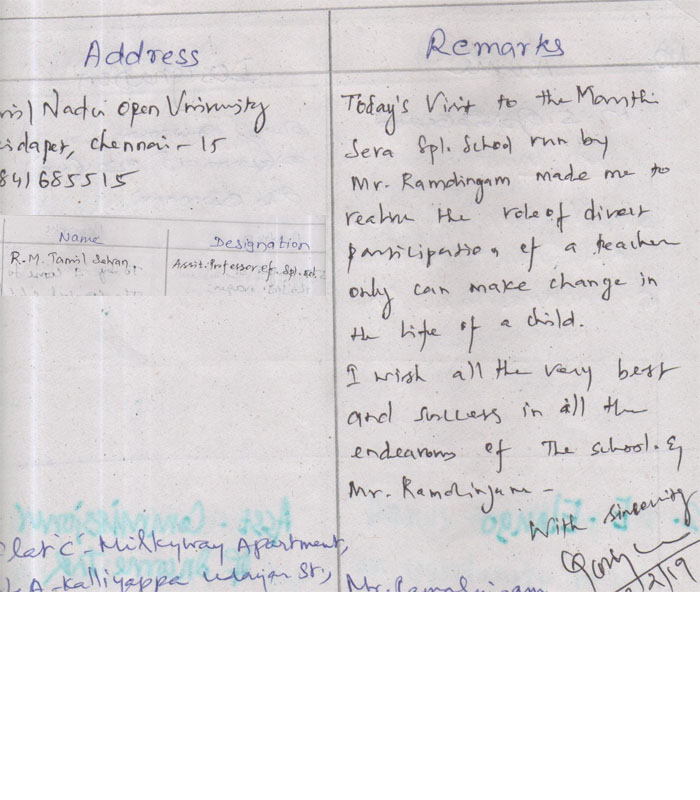 Address
Nadu Open University
Chennai - 15
841685515
Name
Designation
R.M. Tamil Selvan,
Assit. Professor of Spl. Ed.
Remarks
Today's Visit to the Manthi
Seva Spl. School run by
Mr. Ramalingam made me to
realise the role of direct
participation of a teacher
only can make change in
the life of a child.
I wish all the very best
and success in all the
endeavours of The school. &
Mr. Ramalingam -
With sincerity
2/19
'C'- Milkyway Apartment,
A - Kalliyappa St.,
Mr. Ramalingam